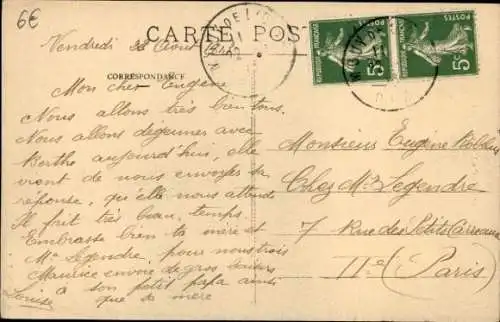 6€
CARTE POST
CORRESPONDANCE
REPUBLIQUE FRANÇAISE
POSTES
5c
REPUBLIQUE FRANÇAISE
POSTES
5c
Vendredi 22 Août
Mon cher Eugène
Nous allons très bien tous.
Nous allons déjeuner avec
Berthe aujourd'hui, elle
vient de nous envoyer sa
réponse, qu'elle nous attend
Il fait très beau temps.
Embrasse bien ta mère et
Me Legendre, pour nous trois
Maurice envoie de gros baisers
à son petit papa ainsi
que sa mère
Louise
Monsieur Eugène
Chez Mr Legendre
7 Rue des Petits Carreaux
IIe (Paris)